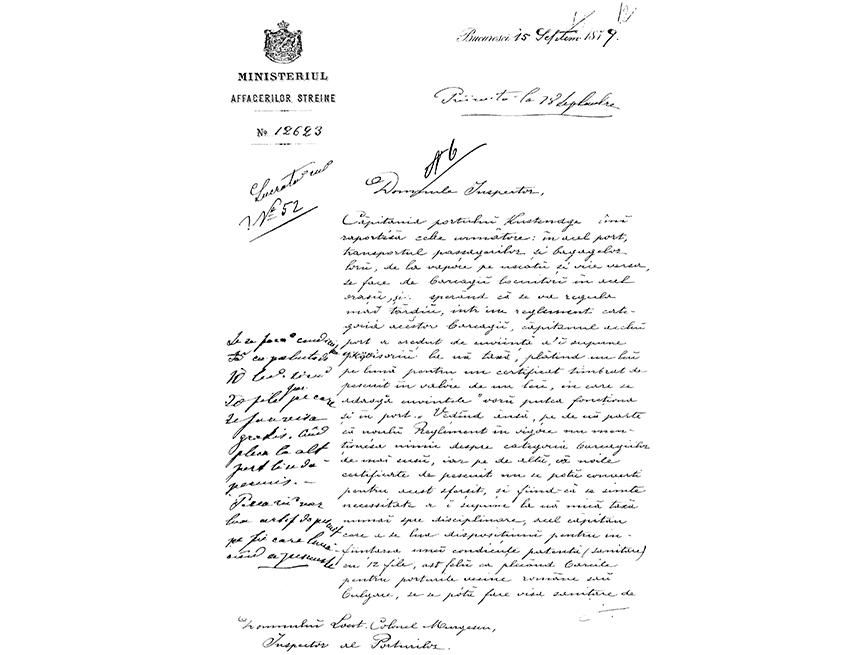 MINISTERIUL
AFFACERILOR STREINE
No. 12623
Bucuresci 15 Septem. 1879.
Priimită la 18 Septembre
No 6
Lucrată cu
No 52
Domnule Inspector,
Căpitania portului Kustendge îmi
raportéză cele următóre: în acel port,
transportul passagerilor și bagagelor
lorŭ, de la vapóre pe uscatŭ și vice versa,
se face de barcagiĭ locuitorĭ în acel
orașŭ, și sperând că se va regula
maĭ târdiŭ, intr'unu reglement cate-
goria acestor barcagiĭ, capitanul acelui
port a credut de cuviintă a'ĭ supune
la uă taxă, plătind un leŭ
pe lună pentru un certificat timbrat de
pescuit în valóre de un leŭ, în care se
adaogă cuvintele "vorŭ putea functiona
si în port". Vĕdând însă, pe de uă parte
că noulŭ Reglement în vigóre nu men-
tionéza nimic despre categoria barcagiilor
de mai susŭ, iar pe de altă, că noile
certificate de pescuit nu se potŭ converti
pentru acest sfârsit, si fiind-că se simte
necessitate a ĭ supune la uă mică taxă
numai spre disciplinare, acel căpitan
cere a se lua dispositiunĭ pentru în-
fiintarea uneĭ condicute patentă (sanitare)
cu 12 file, ast felŭ ca plecând barcile
pentru porturile vecine române saŭ
bulgare, se se pótă face visa sanitare de
Se se facă condicu
cu
10
file pe care
se se facă visa
gratis. Când
pleca la alt
port li se da
permis. –
pe fie care lună
când a pescuesce
Domnuluĭ Locot. Colonel Murgescu,
Inspector al Porturilor.